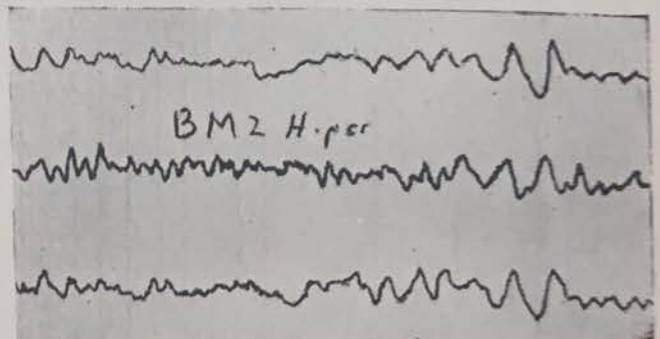 BM2 H.per